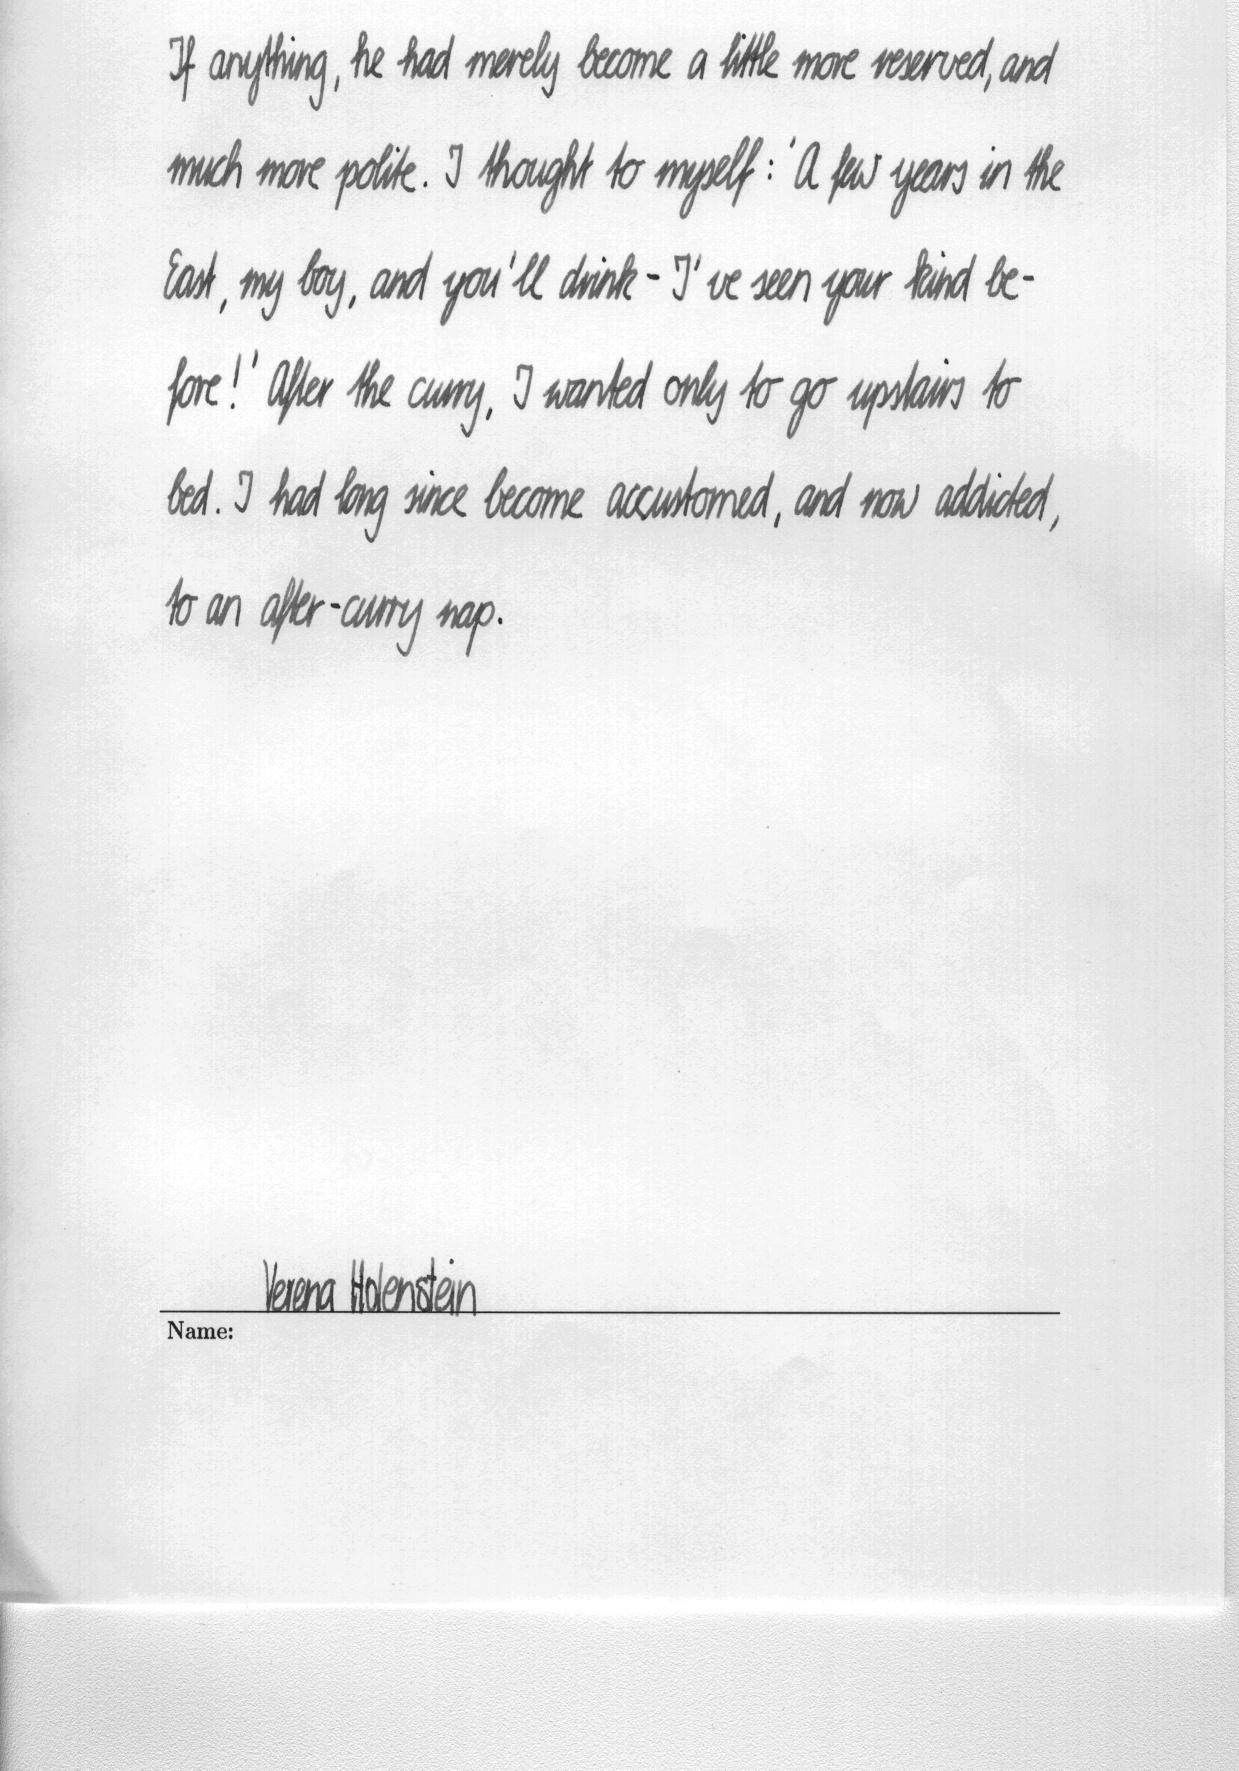 If anything, he had merely become a little more reserved, and
much more polite. I thought to myself: 'A few years in the
East, my boy, and you'll drink - I've seen your kind be-
fore!' After the curry, I wanted only to go upstairs to
bed. I had long since become accustomed, and now addicted,
to an after-curry nap.
Verena Holenstein
Name: